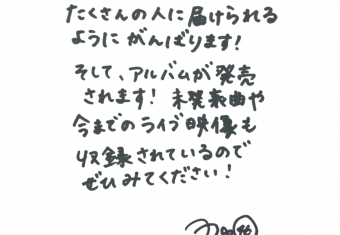 たくさんの人に届けられる
ようにがんばります!
そして、アルバムが発売
されます! 未発表曲や
今までのライブ映像も
収録されているので
ぜひみてください!